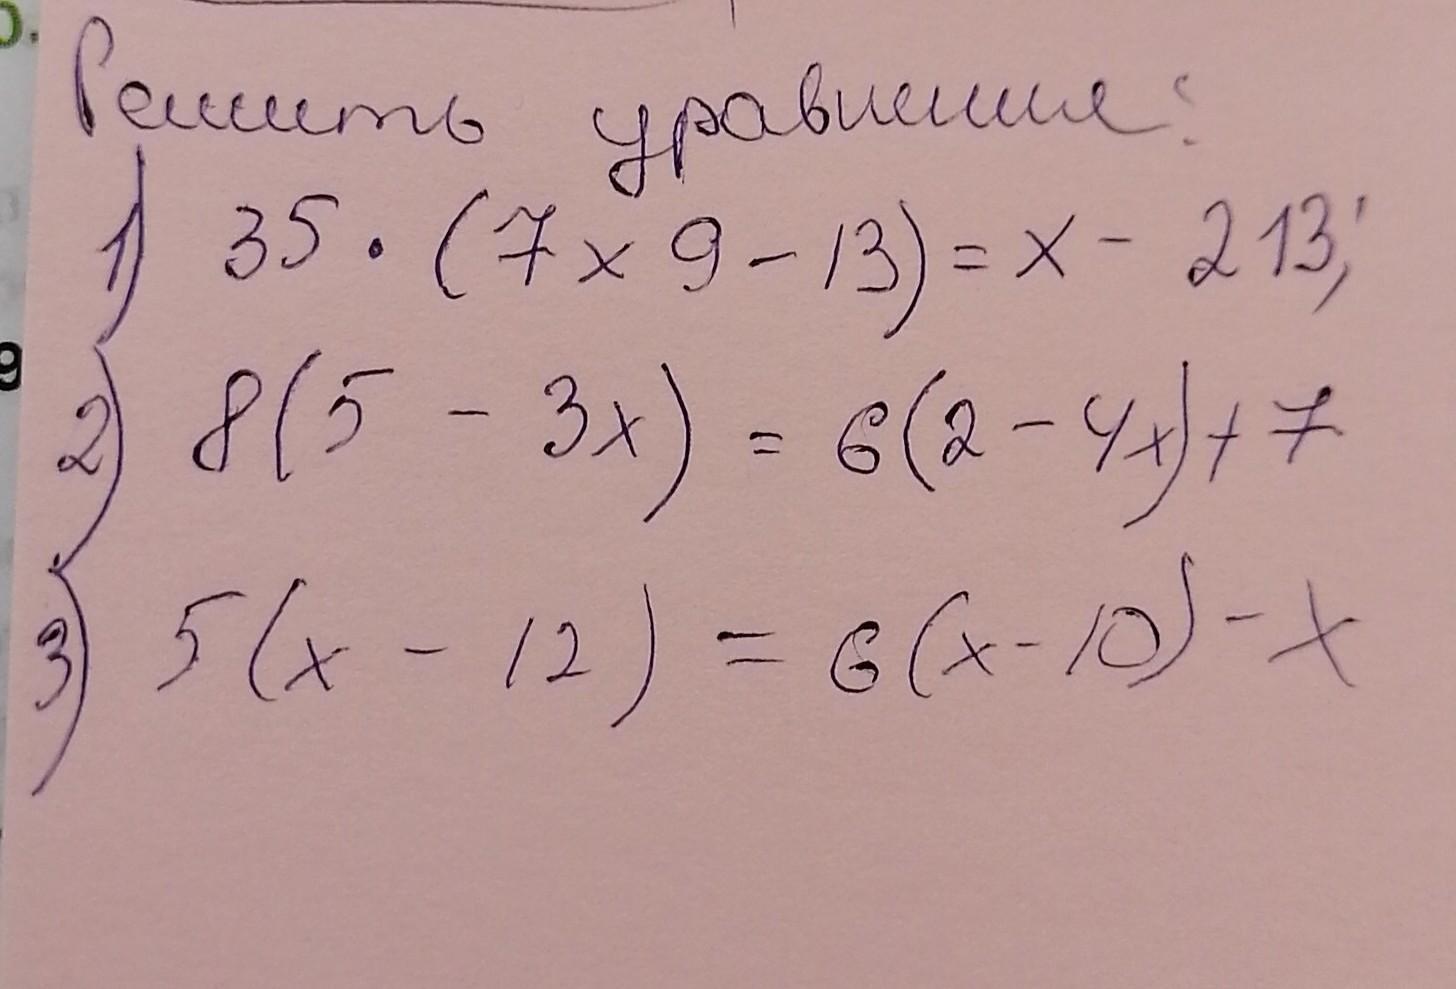 Решить уравнение:
1) 35 · (7 x 9 - 13) = x - 213;
2) 8(5 - 3x) = 6(2 - 4x) + 7
3) 5(x - 12) = 6(x - 10) - x
9